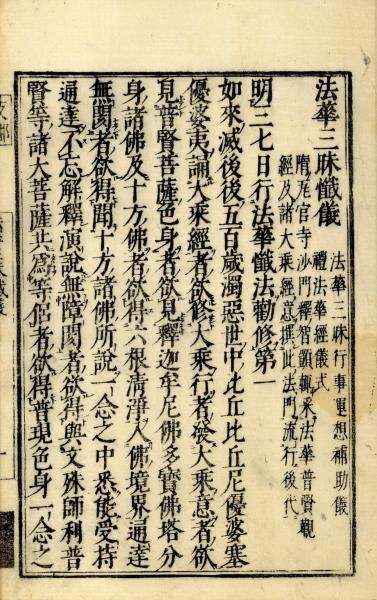 法華三昧懺儀
法華三昧行事運想補助儀
禮法華經儀式
隋瓦官寺沙門釋智顗輒采法華普賢觀
經及諸大乘經意撰此法門流行後代
明三七日行法華懺法勸修第一
如來滅後後五百歲濁惡世中比丘比丘尼優婆塞
優婆夷誦大乘經者欲修大乘行者發大乘意者欲
見普賢菩薩色身者欲見釋迦牟尼佛多寶佛塔分
身諸佛及十方佛者欲得六根清淨入佛境界通達
無閡者欲得聞十方諸佛所說一念之中悉能受持
通達不忘解釋演說無障閡者欲得與文殊師利普
賢等諸大菩薩共爲等侶者欲得普現色身一念之